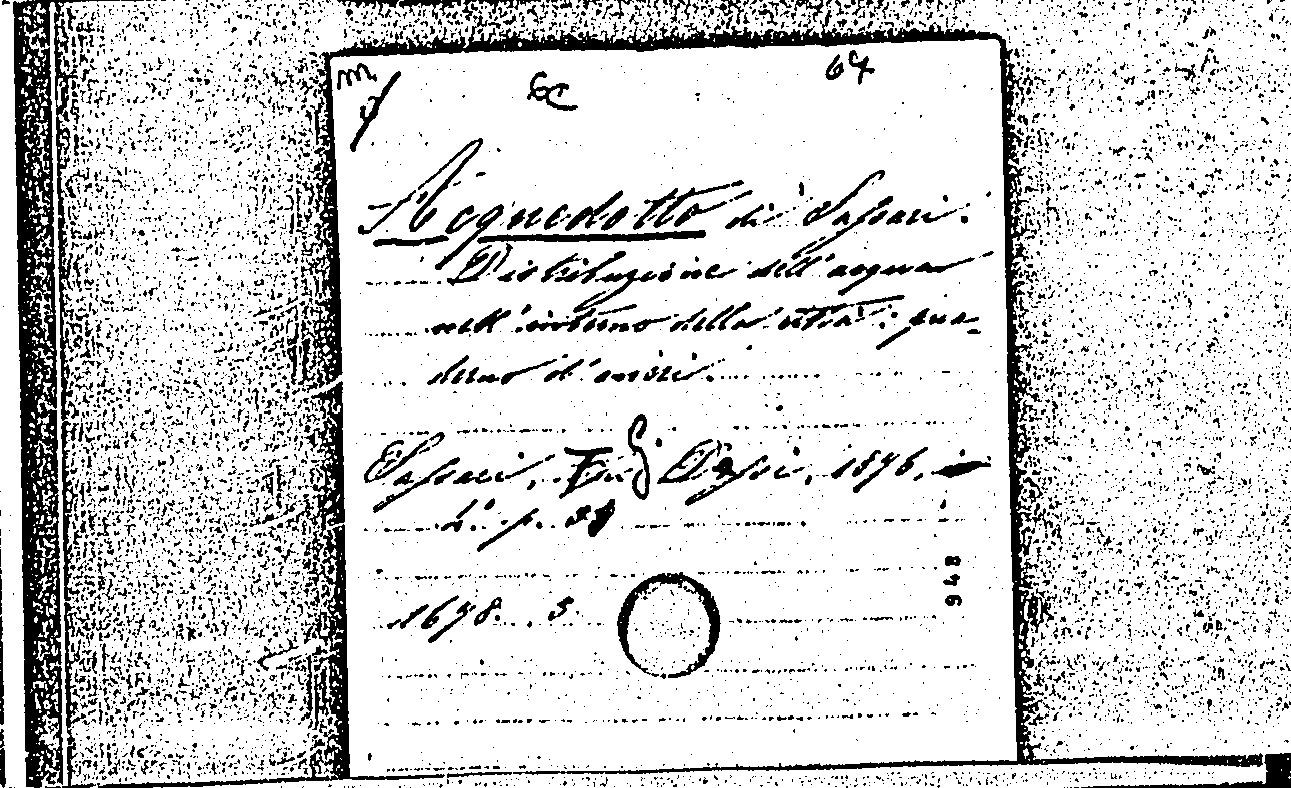 m
64
Acquedotto di Sassari.
Distribuzione dell'acqua
nell'interno della città: qua-
derno d'oneri.
Sassari, Tip. Dessì, 1876, in
4. p.
1678. 3.
948